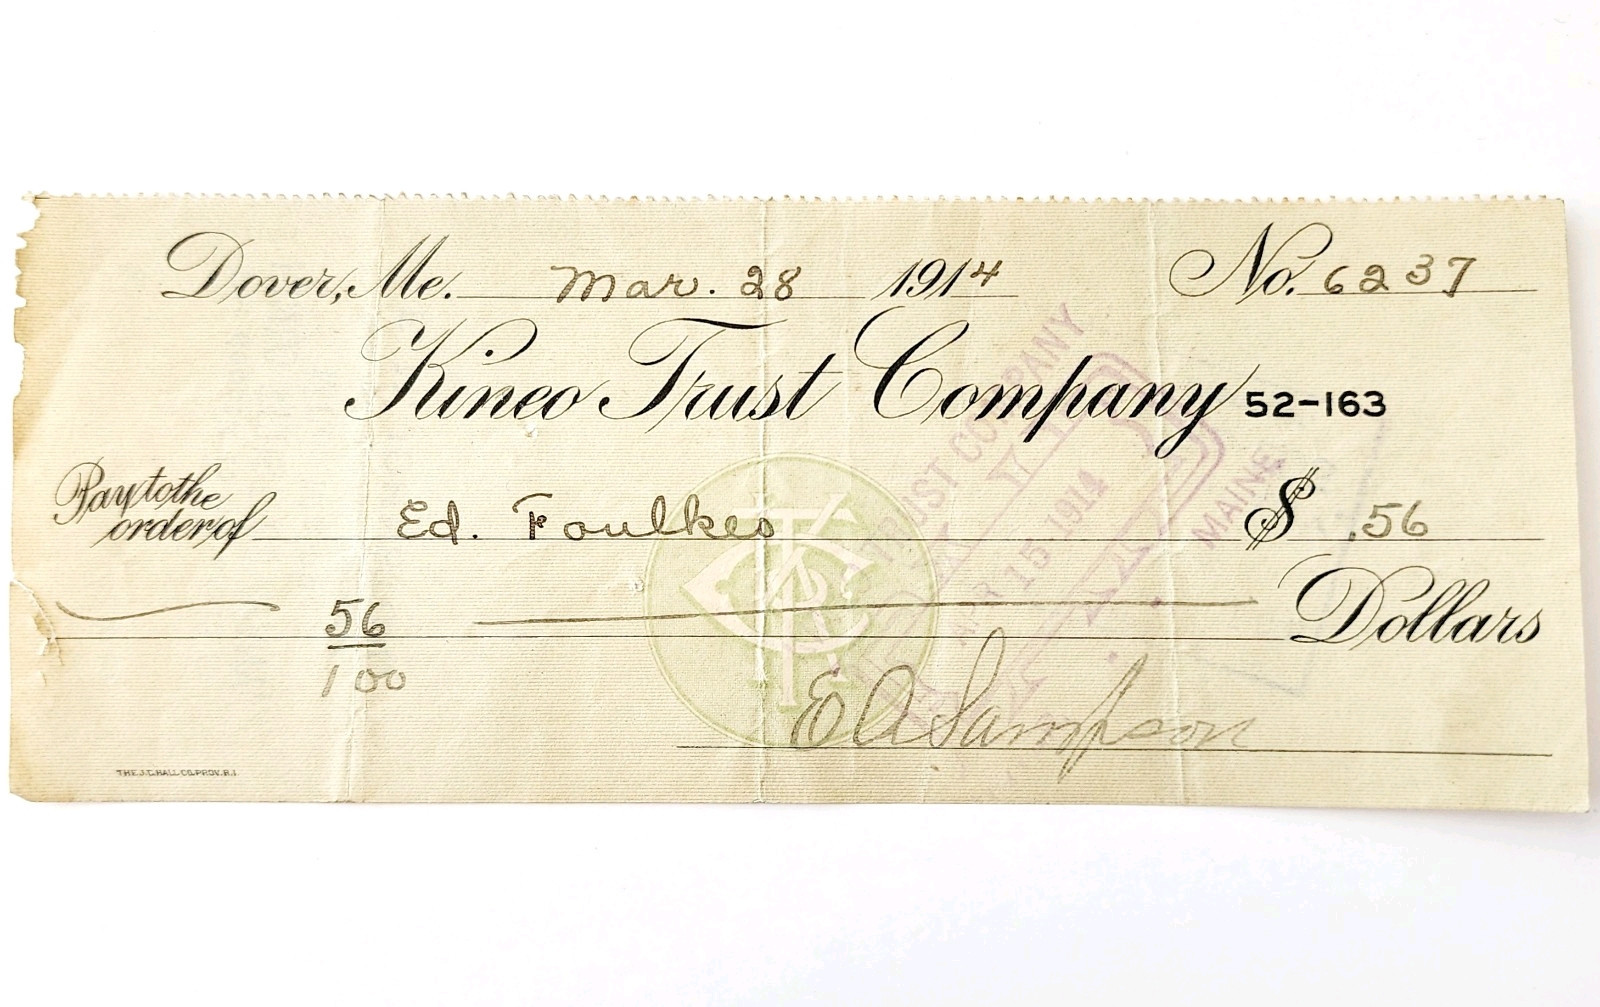 Dover, Me. Mar. 28 1914 No. 6237
Kineo Trust Company 52-163
Pay to the
order of Ed. Foulkes $ .56
56
100 Dollars
E A Sampson
THE J.C. HALL CO. PROV. R.I.
TRUST COMPANY
APR 15 1914
MAINE